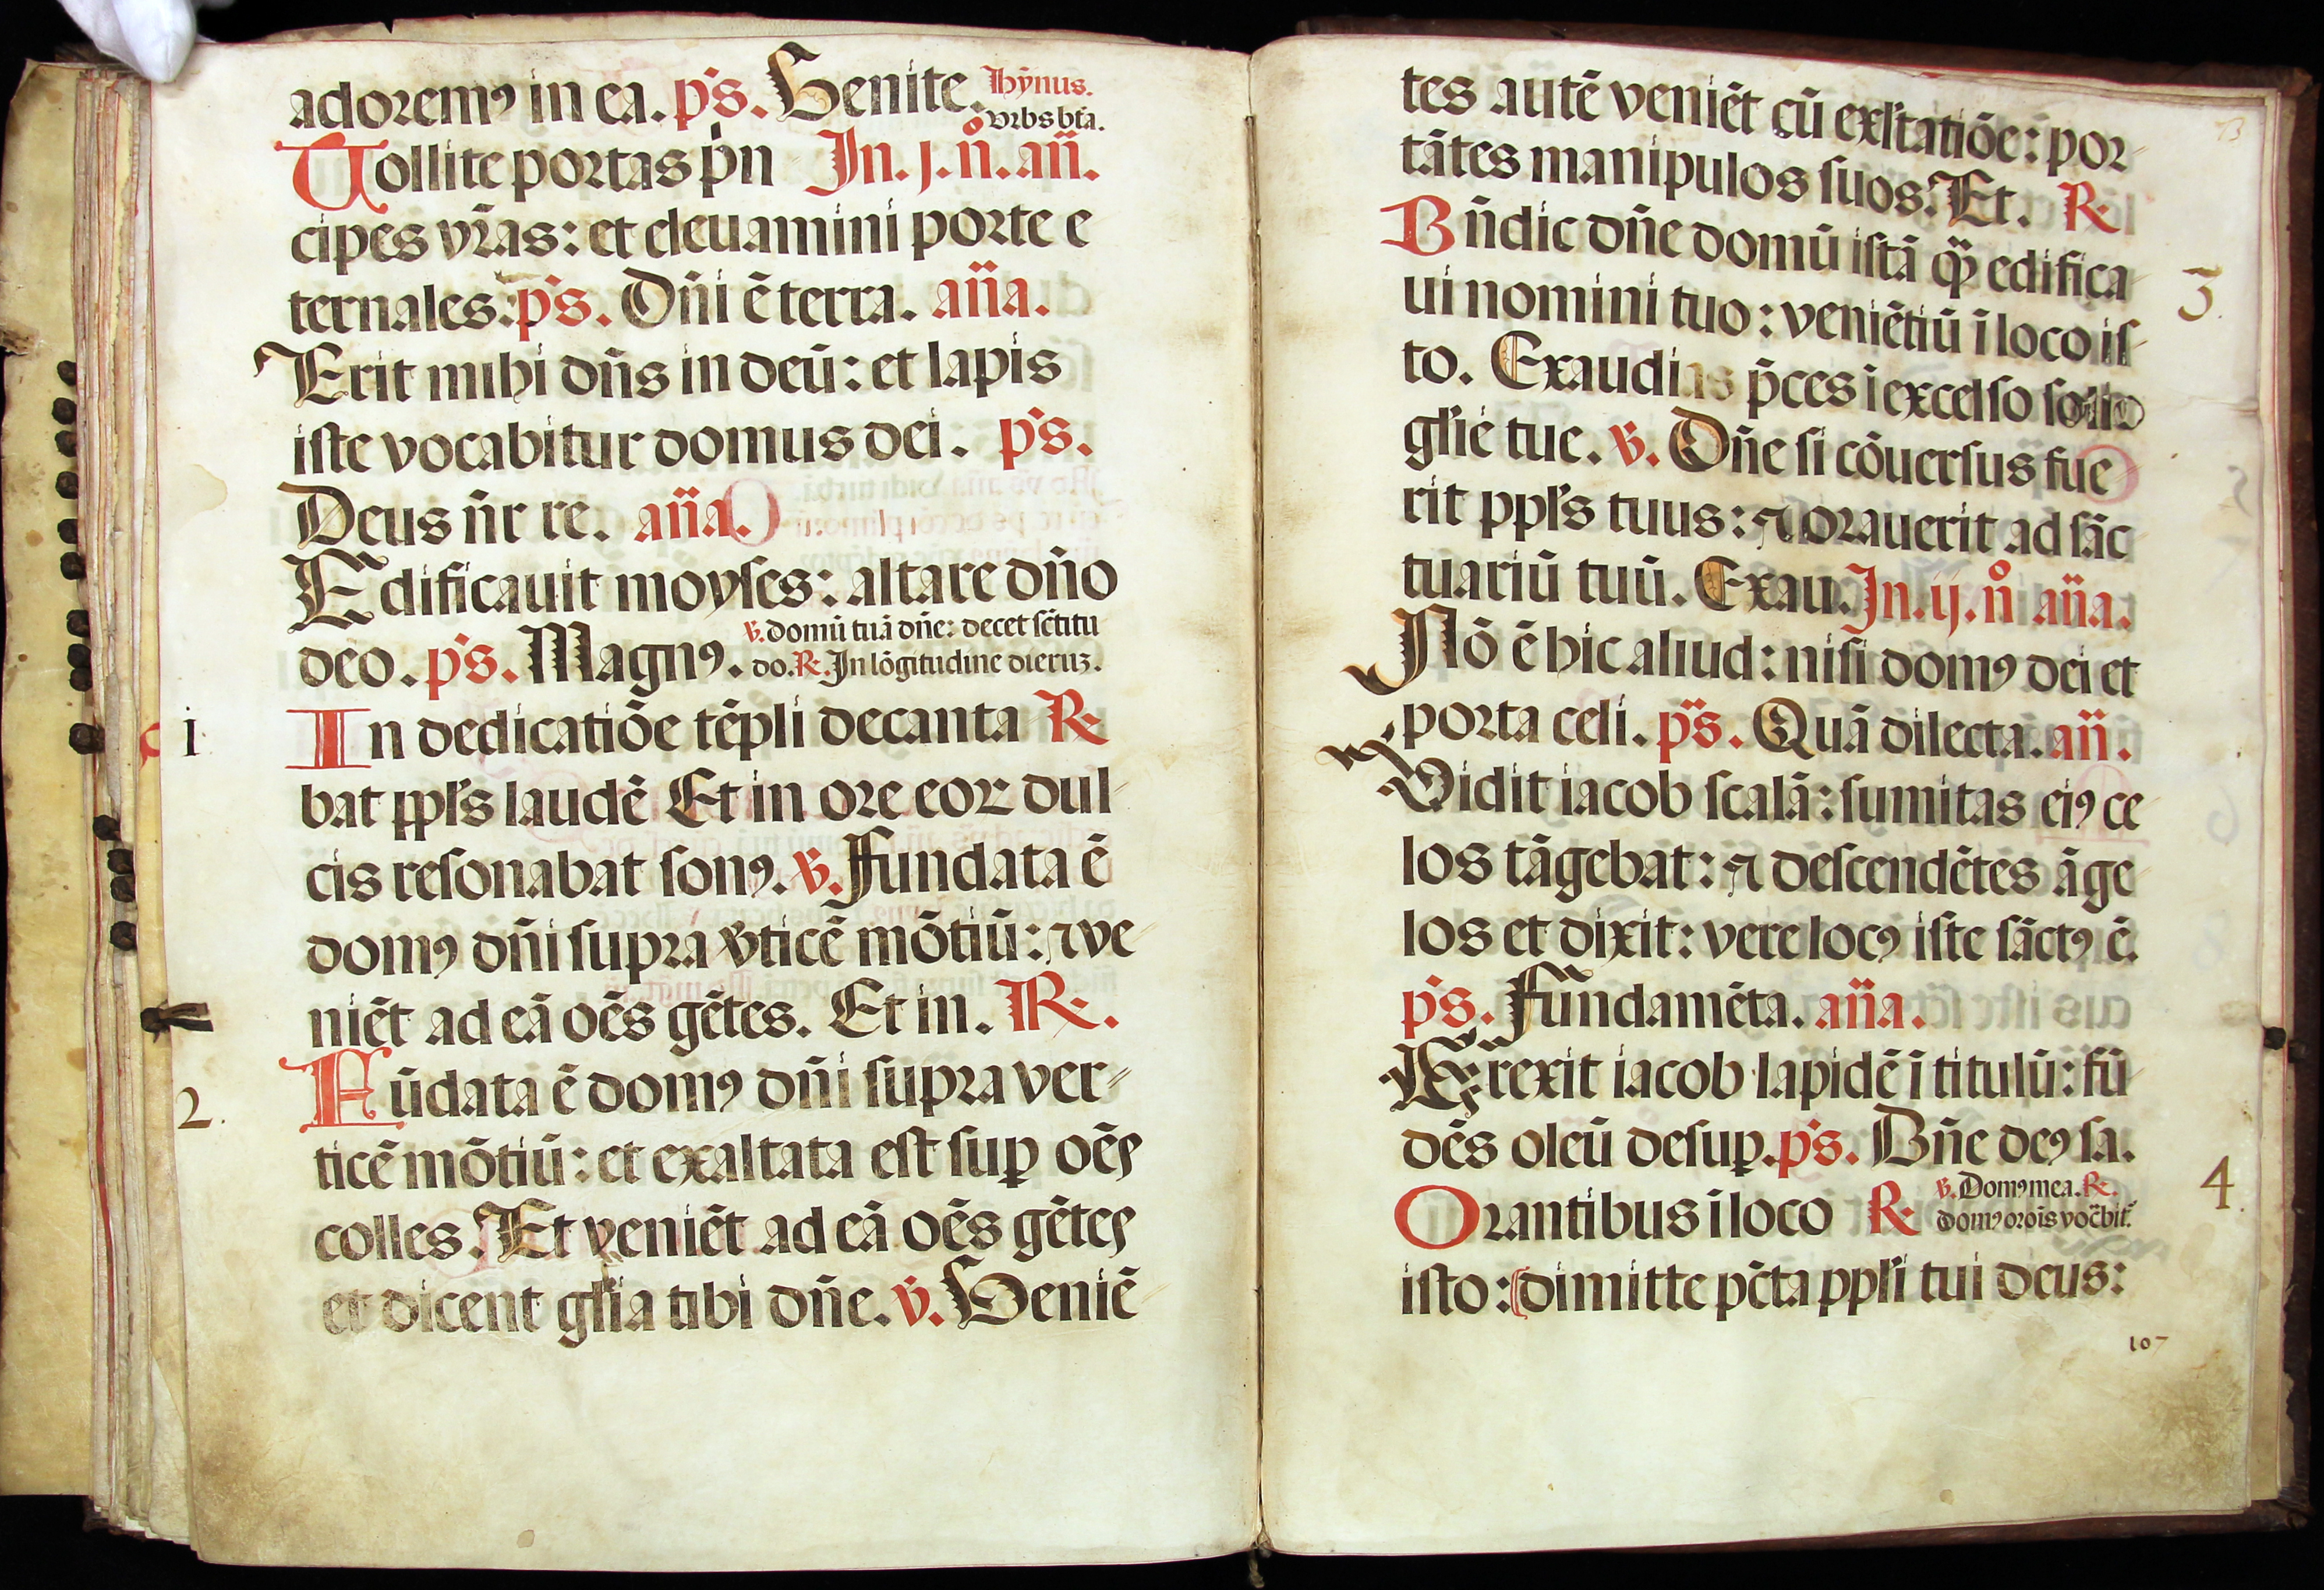 adoremꝯ in ea. ps. Venite. hȳnus.
vrbs bt̄a.
Tollite portas pͥn In. j. n̊. añ.
cipes vr̄as: et eleuamini porte e
ternales: ps. Dñi ē terra. aña.
Erit mihi dñs in deū: et lapis
iste vocabitur domus dei. ps.
Deus ñr re. aña.
Edificauit moyses: altare dño
deo. ps. Magnꝯ. ꝟ. domū tuā dñe: decet sc̄titu
do. R. In lōgitudine dieruꝫ.
i In dedicatiōe tēpli decanta R
bat ppl's laudē Et in ore eoꝝ dul
cis resonabat sonꝯ. ꝟ. Fundata ē
domꝯ dñi supra ꝟticē mōtiū: ⁊ ve
niēt ad eā oēs gētes. Et in. R.
2. Fūdata ē domꝯ dñi supra ver
ticē mōtiū: et exaltata est suꝑ oēs
colles. Et veniēt ad eā oēs gētes
et dicent gl'ia tibi dñe. ꝟ. Veniē
tes autē veniēt cū exl'tatiōe: por
tātes manipulos suos. Et. R
3. Bñdic dñe domū istā qᷓꝫ edifica
ui nomini tuo: veniētiū ī loco is
to. Exaudias p̄ces ī excelso solio
gl'ie tue. ꝟ. Dñe si cōuersus fue
rit ppl's tuus: ⁊ orauerit ad sāc
tuariū tuū. Exau. In. ij. n̊ aña.
Nō ē hic aliud: nisi domꝯ dei et
porta celi. ps. Quā dilecta. añ.
Vidit iacob scalā: sumitas eiꝯ ce
los tāgebat: ⁊ descendētes āge
los et dixit: vere locꝯ iste sāctꝯ ē.
ps. Fundamēta. aña.
Erexit iacob lapidē ī titulū: fū
dēs oleū desuꝑ. ps. Bñe deꝯ sa.
4. Orantibus ī loco R ꝟ. Domꝯ mea. R.
domꝯ orōis voc̄bit.
isto: dimitte pc̄ta ppl'i tui deus:
107